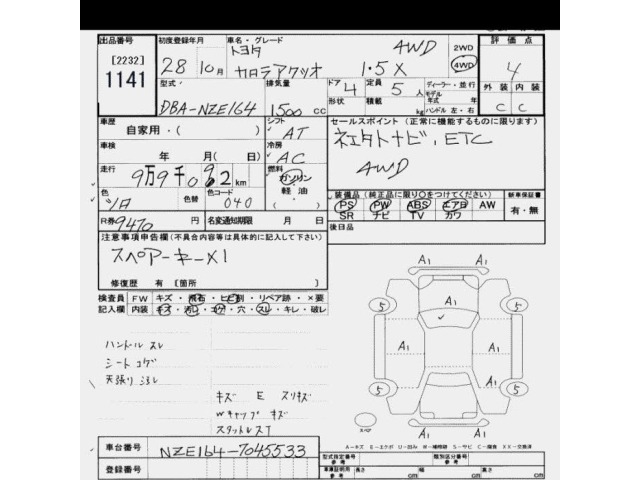 出品番号 初度登録年月 車名・グレード 評価点
[2232] 1141 28年 10月 トヨタ カローラアクシオ 1.5X 4WD 2WD 4WD 4
型式 DBA-NZE164 排気量 1500 CC ドア 4 定員 5人 ディーラー・並行
形状 積載 kg モデル 年式 年 ハンドル 左・右 外装 C 内装 C
車歴 自家用・( ) シフト AT セールスポイント (正常に機能するものに限ります)
車検 年 月(日) 冷房 AC ネエタトナビ、ETC
走行 km 燃料 ガソリン 軽油 4WD
色 色替 色コード 040 装備品 (純正品に限り○をつけてください) 新車保証書
PS PW ABS エアB AW 有・無
R券 9470 円 名変通知期限 月 日 SR ナビ TV カワ
後日品
注意事項申告欄 (不具合内容等は具体的に記入して下さい)
スペアーキーX1
修復歴 有 [箇所
検査員 FW キズ・飛石・ヒビ割・リペア跡・×要
記入欄 内装 キズ・汚レ・コゲ・穴・スレ・キレ・破レ
ハンドル スレ
シート コゲ
天張り ヨゴレ
キズ E スリキズ
Wキャップ キズ
スタットレスT
A1 A1 A1
5 5
A1 A1 A1
5 5
A1
A1
スペア
A-キズ E-エクボ U-凹み W-補修跡 S-サビ C-腐食 XX-交換済
車台番号 NZE164-7045533
登録番号
型式指定番号 参考 類別区分番号 参考
車庫証明用 参考 長さ cm 幅 cm 高さ cm